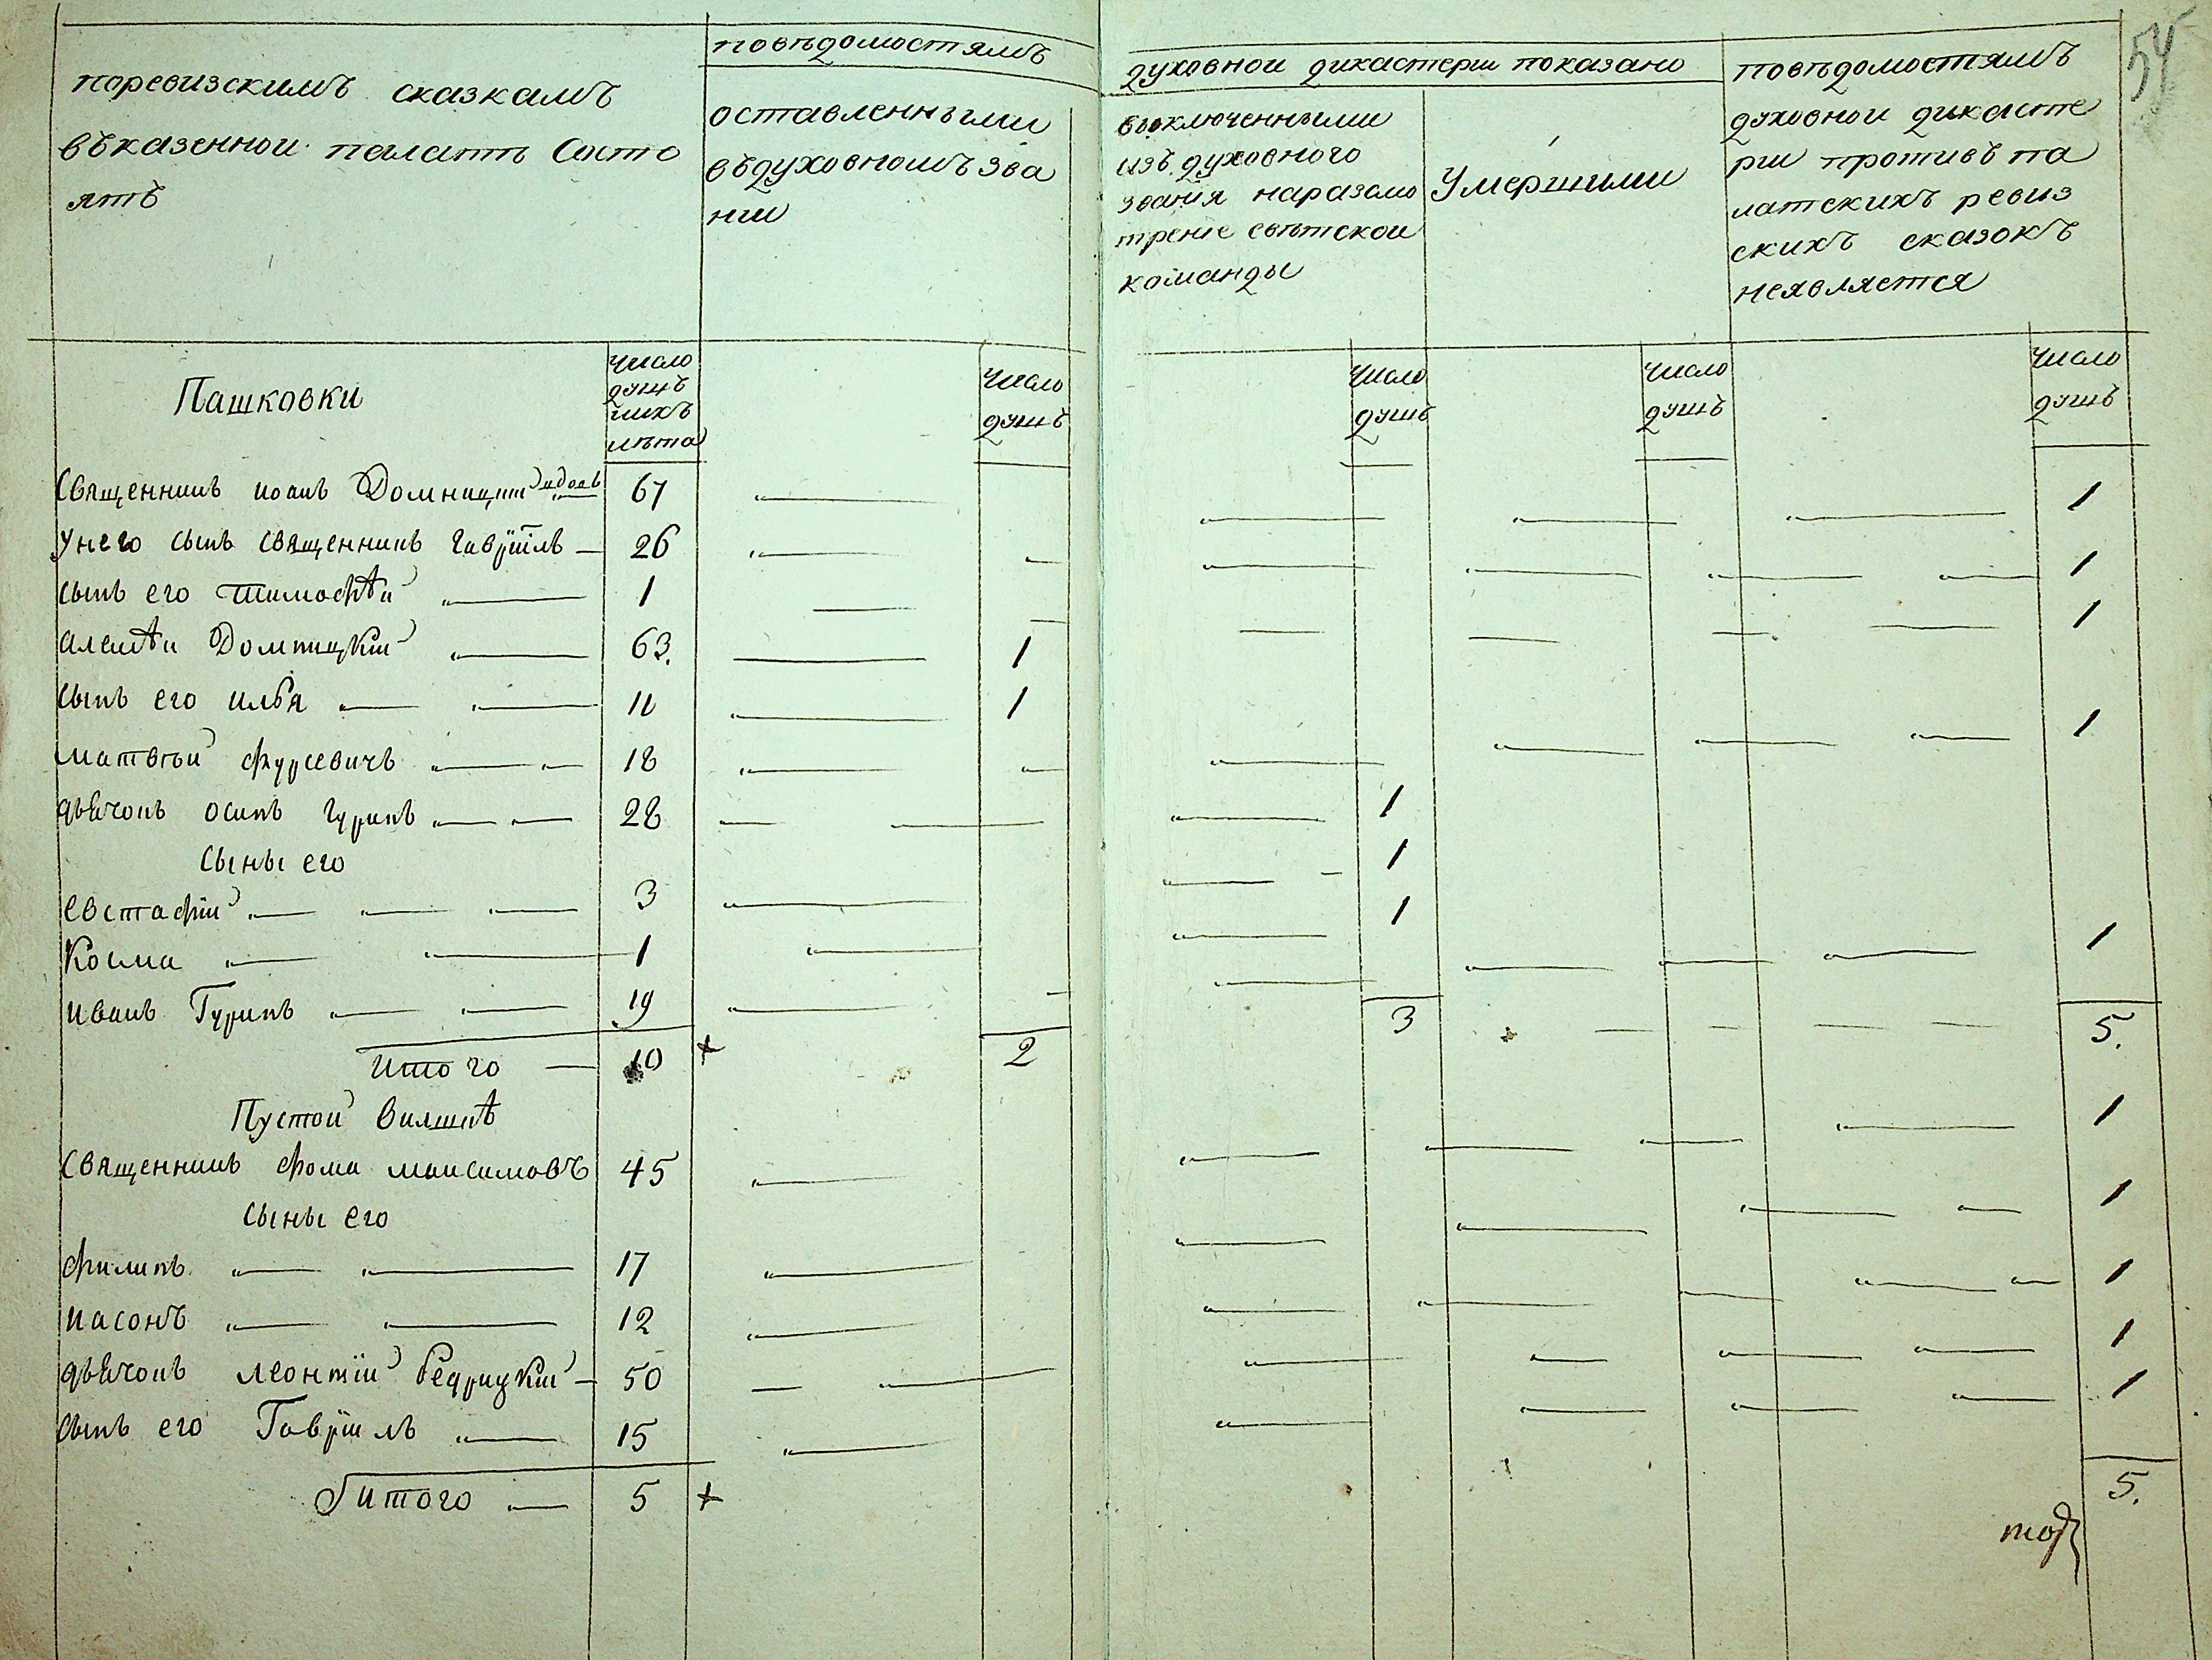 54
поревизскимъ сказкамъ
въказеннои палатѣ Состо
ятъ
повѣдомостямъ
оставленными
въдуховномъ зва
нии
духовнои дикастерии показано
выключенными
изъ духовного
звания наразсмо
трение свѣтскои
команды
Умершими
повѣдомостямъ
духовнои дикасте
рии противъ па
латскихъ ревиз
скихъ сказокъ
неявляется
Пашковки
число
душъ
ихъ
лѣта
число
душъ
число
душъ
число
душъ
число
душъ
Священникъ иоанъ Домницки 67 1
унего сынъ священникъ гавріилъ 26 1
сынъ его тимофѣй 1 1
алексѣи Домницкій 63. 1
сынъ его илья 11 1
матвѣй фурсевичъ 18 1
дьячокъ осипъ гуринъ 28 1
Сыны его
евстафій 3 1
Косма 1 1
иванъ Гуринъ 19 1
итого 10 + 2 3 5.
Пустой вилшнѣ
Священникъ фома максимовъ 45 1
сыны его
филипъ 17 1
иасонъ 12 1
дьячокъ леонтій бедрицкій 50 1
сынъ его Гавріилъ 15 1
итого 5 + 5.